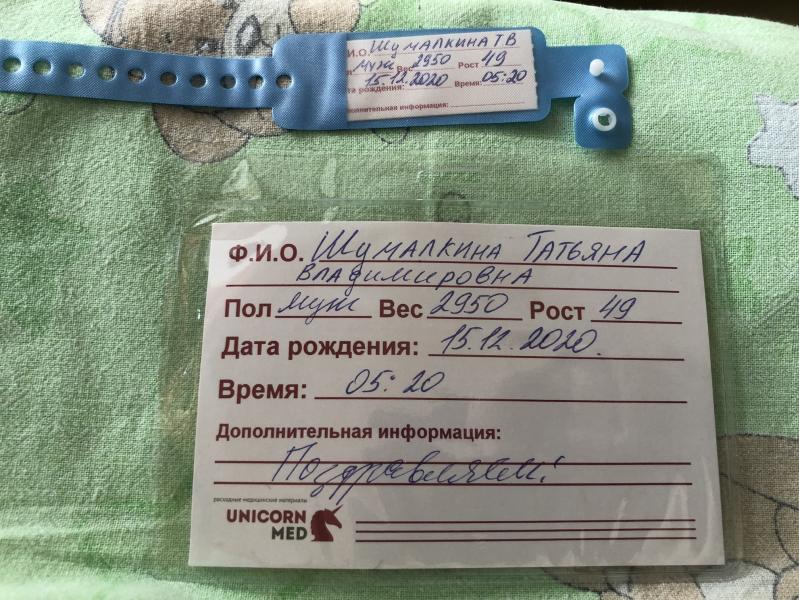 Ф.И.О. Шумалкина Т В
муж Вес 2950 Рост 49
15.12.2020 05:20
та рождения: Время:
полнительная информация:
Ф.И.О. Шумалкина Татьяна
Владимировна
Пол муж Вес 2950 Рост 49
Дата рождения: 15.12.2020.
Время: 05:20
Дополнительная информация:
Поздравляем!
расходные медицинские материалы
UNICORN
MED